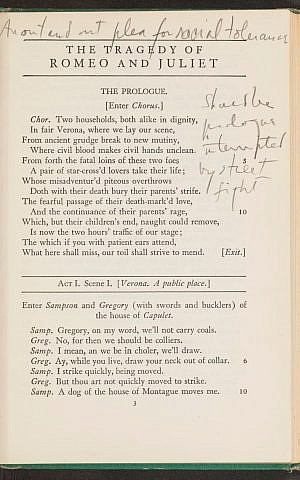 An out and out plea for racial tolerance
THE TRAGEDY OF
ROMEO AND JULIET
THE PROLOGUE.
[Enter Chorus.]
Chor. Two households, both alike in dignity,
In fair Verona, where we lay our scene,
From ancient grudge break to new mutiny,
Where civil blood makes civil hands unclean.
From forth the fatal loins of these two foes 5
A pair of star-cross'd lovers take their life;
Whose misadventur'd piteous overthrows
Doth with their death bury their parents' strife.
The fearful passage of their death-mark'd love,
And the continuance of their parents' rage, 10
Which, but their children's end, naught could remove,
Is now the two hours' traffic of our stage;
The which if you with patient ears attend,
What here shall miss, our toil shall strive to mend. [Exit.]
Should be
prologue
interrupted
by street
fight
ACT I. Scene I. [Verona. A public place.]
Enter Sampson and Gregory (with swords and bucklers) of
the house of Capulet.
Samp. Gregory, on my word, we'll not carry coals.
Greg. No, for then we should be colliers.
Samp. I mean, an we be in choler, we'll draw.
Greg. Ay, while you live, draw your neck out of collar. 6
Samp. I strike quickly, being moved.
Greg. But thou art not quickly moved to strike.
Samp. A dog of the house of Montague moves me. 10
3